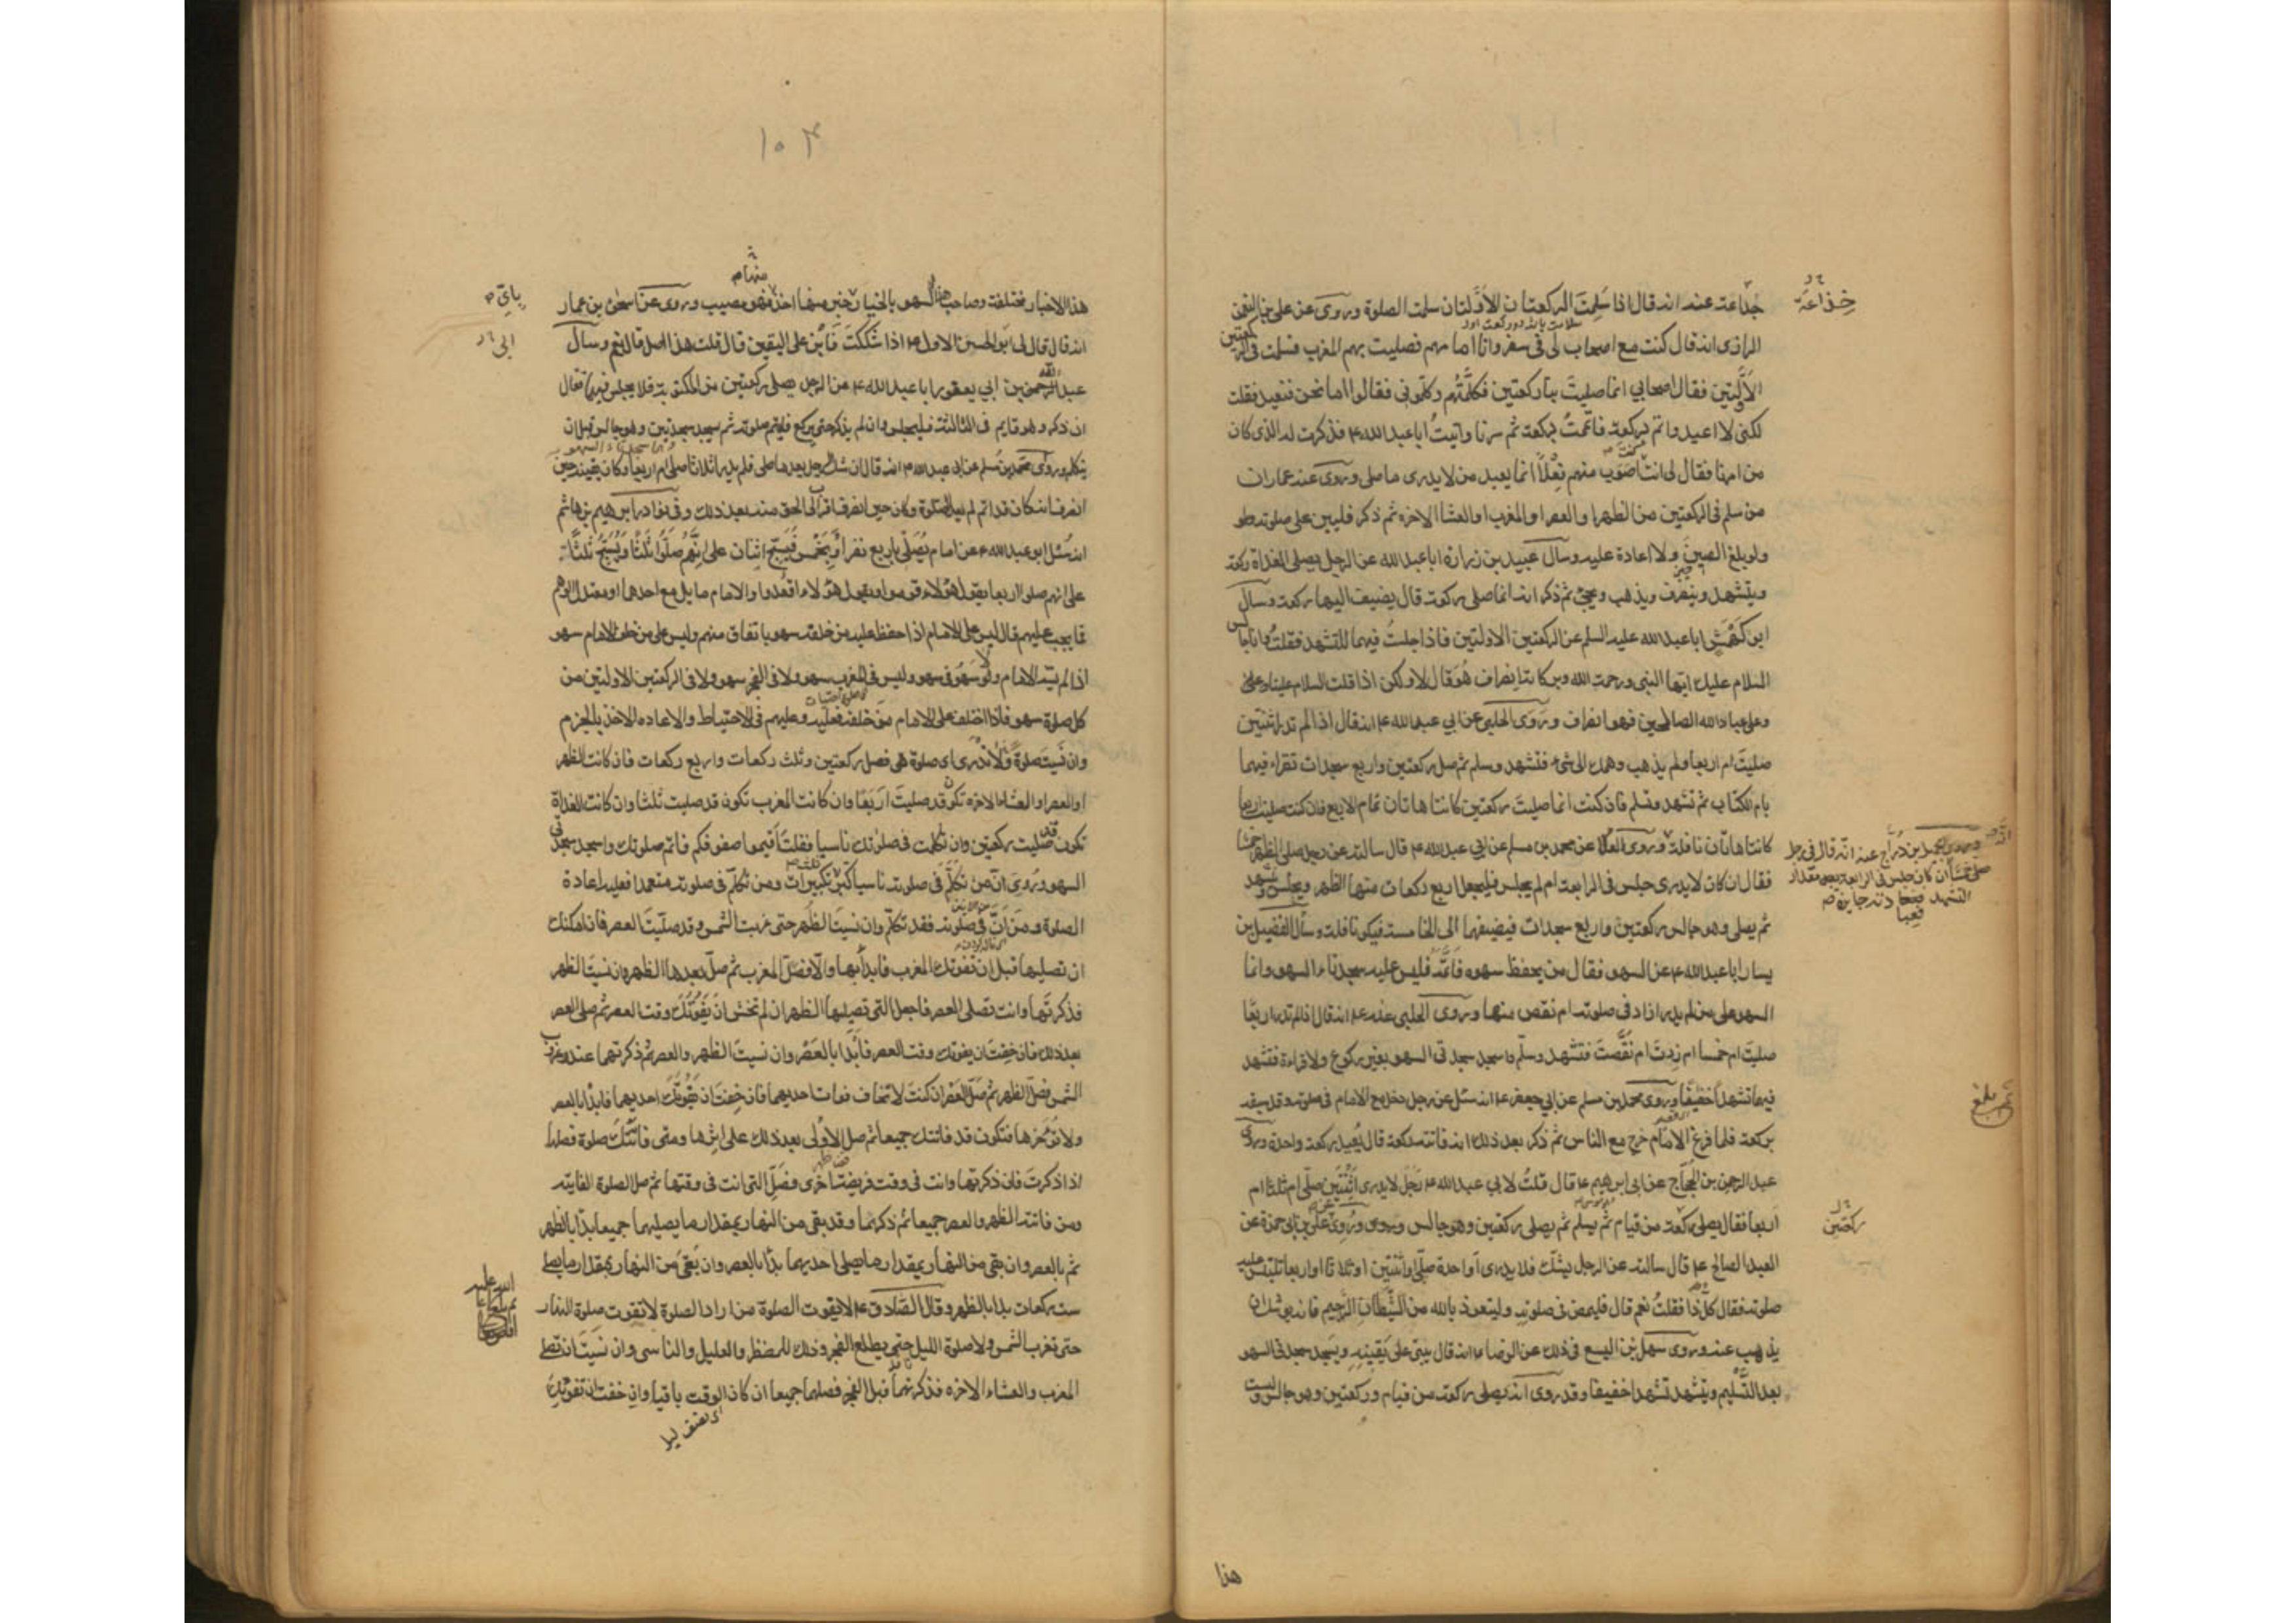 جذاعة عنه انه قال اذا سلمت الركعتان الاولتان سلمت الصلوة وروى عن على بن النعمن
الرازى انه قال كنت مع اصحاب لى فى سفر وانا امامهم فصليت بهم المغرب فسلمت فى الركعتين
الاولتين فقال اصحابي انما صليت بنا ركعتين فكلمتهم وكلمونى فقالوا اما نحن فنعيد فقلت
لكنى لا اعيد واتم بركعة فاتممت بركعة ثم سرنا واتيت ابا عبد الله ع فذكرت له الذى كان
من امرنا فقال لى انت اصوب منهم فعلا انما يعيد من لا يدرى ما صلى وروى عنه عمار ان
من سلم فى الركعتين من الظهر او العصر او المغرب او العشا الاخرة ثم ذكر فليبن على صلوته
ولو بلغ الصين ولا اعادة عليه وسال عبيد بن زرارة ابا عبد الله عن الرجل يصلى الغداة ركعة
ويتشهد وينصرف ويذهب ويجئ ثم ذكر انه انما صلى ركعة قال يضيف اليها ركعة وسال
ابن كهمش ابا عبد الله عليه السلم عن الركعتين الاولتين فاذا جلست فيهما للتشهد فقلت وانا جالس
السلام عليك ايها النبى ورحمة الله وبركاته انصراف هو قال لا ولكن اذا قلت السلام علينا
وعلى عباد الله الصالحين فهو انصراف وروى الحلبى عن ابي عبد الله ع انه قال اذا لم تدر اثنتين
صليت ام اربعا ولم يذهب وهمك الى شئ فتشهد وسلم ثم صل ركعتين واربع سجدات تقراء فيهما
بام الكتاب ثم تشهد وتسلم فان كنت انما صليت ركعتين كانتا هاتان تمام الاربع فان كنت صليت اربعا
كانتا هاتان نافلة وروى العلا عن محمد بن مسلم عن ابي عبد الله ع قال سالته عن رجل صلى الظهر خمسا
فقال ان كان لا يدرى جلس فى الرابعة ام لم يجلس فليجعل اربع ركعات منها الظهر ويجلس ويتشهد
ثم يصلى وهو جالس ركعتين واربع سجدات فيضيفهما الى الخامسة فيكون نافلة وسأل الفضيل بن
يسار ابا عبد الله ع عن السهو فقال من يحفظ سهوه فاتمه فليس عليه سجدتا السهو وانما
السهو على من لم يدر ازاد فى صلوته ام نقص منها وروى الحلبى عنه ع انه قال اذا لم تدر اربعا
صليت ام خمسا ام زدت ام نقصت فتشهد وسلم واسجد سجدتى السهو بغير ركوع ولا قراءة فتشهد
فيهما تشهدا خفيفا وروى محمد بن مسلم عن ابي جعفر ع انه سئل عن رجل دخل مع الامام فى صلوته وقد سبقه
بركعة فلما فرغ الامام خرج مع الناس ثم ذكر بعد ذلك انه فاتته ركعة قال يعيد ركعة واحدة وروى
عبد الرحمن بن الحجاج عن ابى ابرهيم ع قال قلت لابي عبد الله ع رجل لا يدرى اثنتين صلى ام ثلثا ام
اربعا فقال يصلى ركعة من قيام ثم يسلم ثم يصلى ركعتين وهو جالس وروى على بن ابي حمزة عن
العبد الصالح ع قال سالته عن الرجل يشك فلا يدرى اواحدة صلى او اثنتين او ثلاثا او اربعا تلتبس عليه
صلوته فقال كل ذا فقلت نعم قال فليمض فى صلوته وليتعوذ بالله من الشيطان الرجيم فانه يوشك ان
يذهب عنه وروى سهل بن اليسع فى ذلك عن الرضا ع انه قال يبنى على يقينه ويسجد سجدتى السهو
بعد التسليم ويتشهد تشهدا خفيفا وقد روى انه يصلى ركعة من قيام وركعتين وهو جالس وليست
خذاعة
وروى جميل بن دراج عنه انه قال فى رجل
صلى خمسا ان كان جلس فى الرابعة مقدار
التشهد فعبادته جايزة
ثم بلغ
ركعتين
هذا
١٠٣
هذه الاخبار مختلفة وصاحب هذا السهو بالخيار باى خبر منها اخذ فهو مصيب وروى عن اسحق بن عمار
انه قال قال لى ابو الحسن الاول ع اذا شككت فابن على اليقين قال قلت هذا اصل قال نعم وسال
عبد الله بن ابي يعفور ابا عبد الله ع عن الرجل يصلى ركعتين من المكتوبة فلا يجلس فيهما فقال
ان ذكر وهو قايم فى الثالثة فليجلس وان لم يذكر حتى يركع فليتم صلوته ثم سجد سجدتين وهو جالس قبل ان
يتكلم وروى محمد بن مسلم عن ابي عبد الله ع انه قال ان شك الرجل بعد ما صلى فلم يدر اثلاثا صلى ام اربعا وكان يقينه حين
انصرف انه كان قد اتم لم يعد الصلوة وكان حين انصرف اقرب الى الحق منه بعد ذلك وفى نوادر ابرهيم بن هاشم
انه سئل ابو عبد الله ع عن امام يصلى باربع نفر او بخمس فيسبح اثنان على انهم صلوا ثلثا ويسبح ثلثة
على انهم صلوا اربعا يقول هؤلاء قوموا ويقول هؤلاء اقعدوا والامام مايل مع احدهما او معتدل الوهم
فما يجب عليهم قال ليس على الامام اذا حفظ عليه من خلفه سهو باتفاق منهم وليس على من خلف الامام سهو
اذا لم يسه الامام ولا سهو فى سهو وليس فى المغرب سهو ولا فى الفجر سهو ولا فى الركعتين الاولتين من
كل صلوة سهو فاذا اختلف على الامام من خلفه فعليه وعليهم فى الاحتياط والاعاده الاخذ بالجزم
وان نسيت صلوة ولا تدرى اى صلوة هى فصل ركعتين وثلث ركعات واربع ركعات فان كانت الظهر
او العصر او العشاء الاخرة تكون قد صليت اربعا وان كانت المغرب تكون قد صليت ثلثا وان كانت الغداة
تكون قد صليت ركعتين وان تكلمت فى صلوتك ناسيا فقلت اقيموا صفوفكم فاتم صلوتك واسجد سجدتى
السهو وروى ان من تكلم فى صلوته ناسيا كبر تكبيرات ومن تكلم فى صلوته متعمدا فعليه اعادة
الصلوة ومن ان فى صلوته فقد تكلم وان نسيت الظهر حتى غربت الشمس وقد صليت العصر فان امكنك
ان تصليها قبل ان تفوتك المغرب فابدأ بها والا فصل المغرب ثم صل بعدها الظهر وان نسيت الظهر
فذكرتها وانت تصلى العصر فاجعل التى تصليها الظهر ان لم تخش ان يفوتك وقت العصر ثم صلى العصر
بعد ذلك فان خفت ان يفوتك وقت العصر فابدا بالعصر وان نسيت الظهر والعصر ثم ذكرتهما عند غروب
الشمس فصل الظهر ثم صل العصر ان كنت لا تخاف فوات احديهما فان خفت ان يفوتك احديهما فابدا بالعصر
ولا تؤخرها فتكون قد فاتتك جميعا ثم صل الاولى بعد ذلك على اثرها ومتى فاتتك صلوة فصلها
اذا ذكرت فان ذكرتها وانت فى وقت فريضة اخرى فصل التى انت فى وقتها ثم صل الصلوة الفايتة
ومن فاتته الظهر والعصر جميعا ثم ذكرهما وقد بقى من النهار بمقدار ما يصليهما جميعا بدا بالظهر
ثم بالعصر وان بقى من النهار بمقدار ما يصلى احديهما بدا بالعصر وان بقى من النهار بمقدار ما يصلى
ست ركعات بدا بالظهر وقال الصادق ع لا يفوت الصلوة من اراد الصلوة لا تفوت صلوة النهار
حتى تغرب الشمس ولا صلوة الليل حتى يطلع الفجر وذلك للمضطر والعليل والناسى وان نسيت ان تصلى
المغرب والعشاء الاخره فذكرتهما قبل الفجر فصلهما جميعا ان كان الوقت باقيا وان خفت ان تفوتك
باى